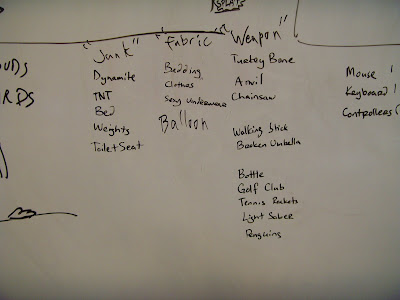 "Junk"
Dynamite
TNT
Bed
Weights
Toilet Seat
"Fabric"
Bedding
Clothes
Sexy Underwear
Balloon
"Weapon"
Turkey Bone
Anvil
Chainsaw
Walking Stick
Broken Umbella
Bottle
Golf Club
Tennis Rackets
Light Saber
Penguins
OUDS
RDS
Mouse
Keyboard
Controllers